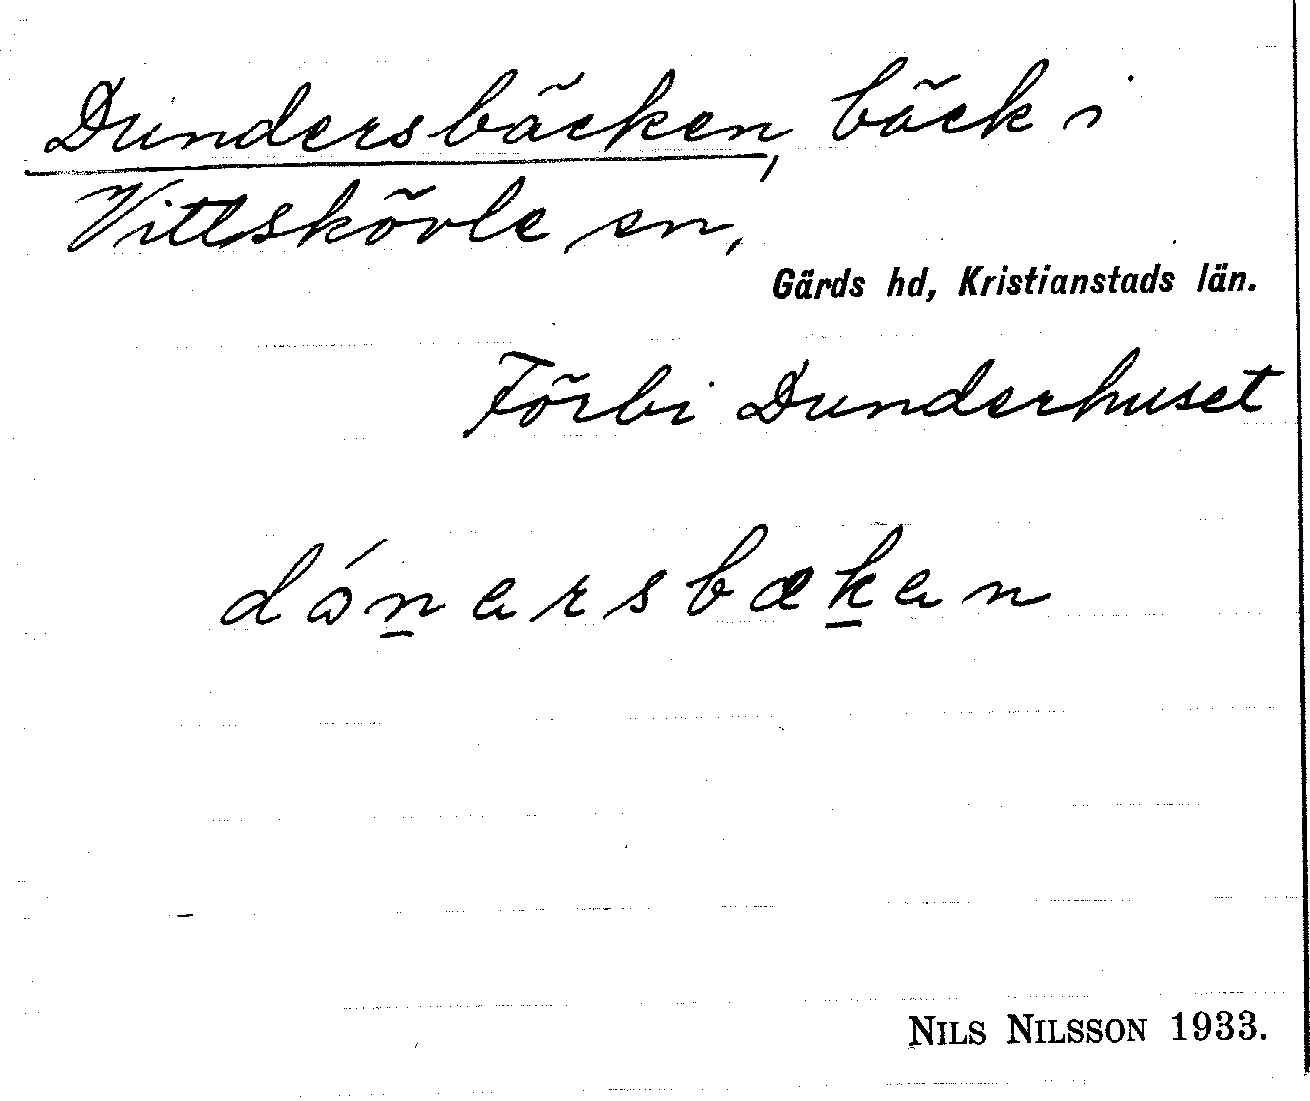 Dundersbäcken, bäck i
Vittskövle sn,
Gärds hd, Kristianstads län.
Förbi Dunderhuset
dón̲ersbæk̲en
NILS NILSSON 1933.